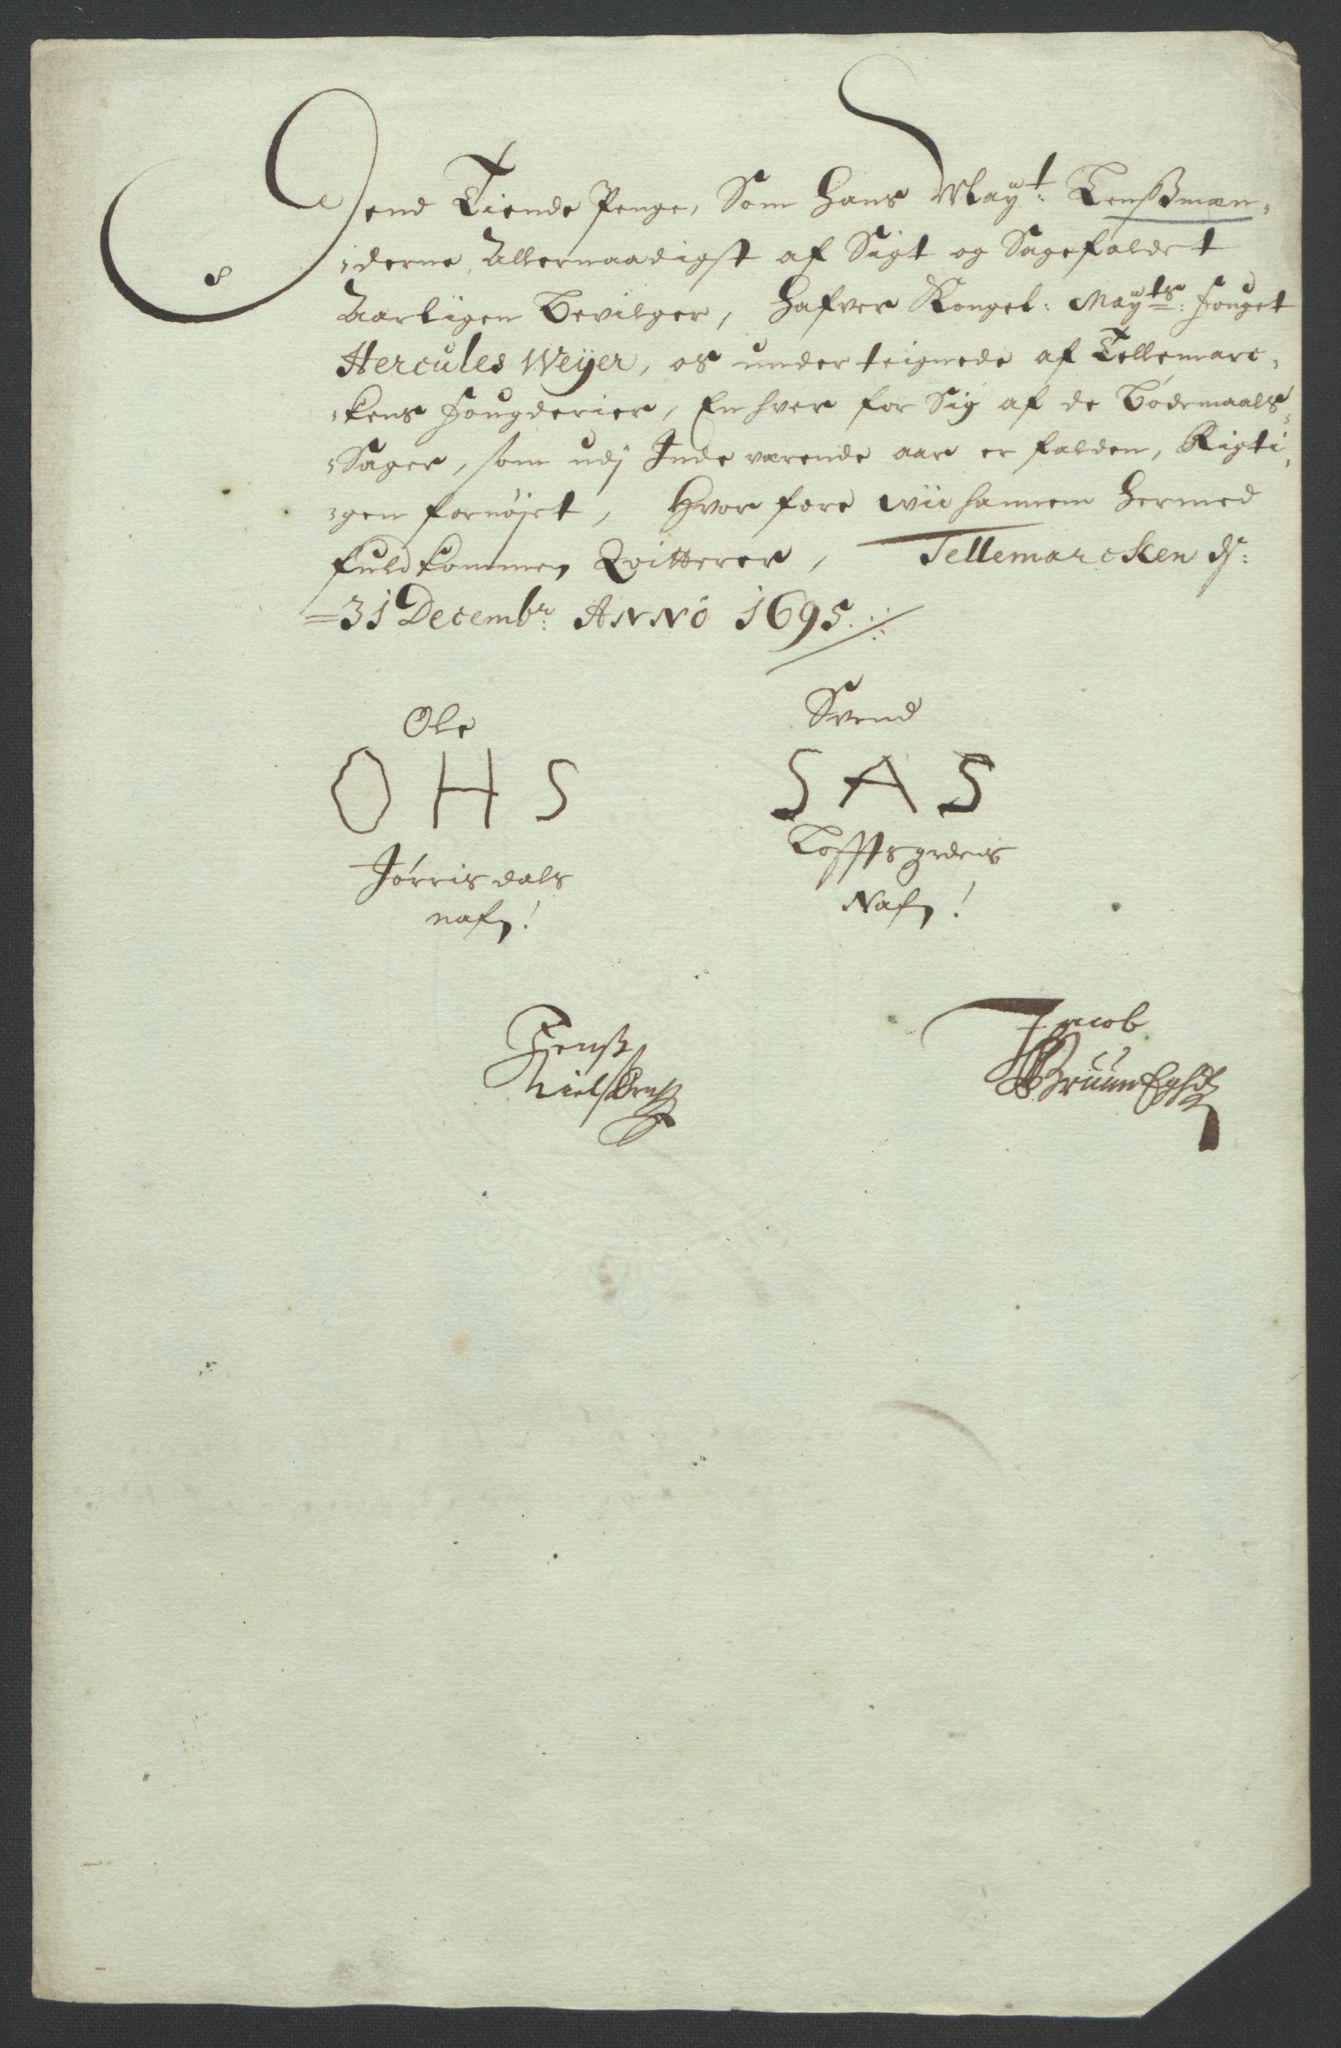 Dend Tiende Penge, Som Hans Mayt: Lenßmæn-
-derne Allernaadigst af Sigt og Sagefaldet
Aarligen Bevilger, Hafver Kongel: Mayts: Fouget
Hercules Weÿer, os underteignede af Tellemarc-
-kens Fougderier, En hver for Sig af de Bödemaals-
-Sager, som udj Inde værende aar er falden, Rigti-
-gen fornøjet, Hvor fore wii hannem Hermed
fuldkommen Qvitterer, Tellemarcken ds:
=31 Decembr: ANNO 1695.
Ole Svend
O H S S A S
Jørrisdals Lofftsgrdens
nafn! Nafn!
Jenß Jacob
Nielßen Bruun Eghdl